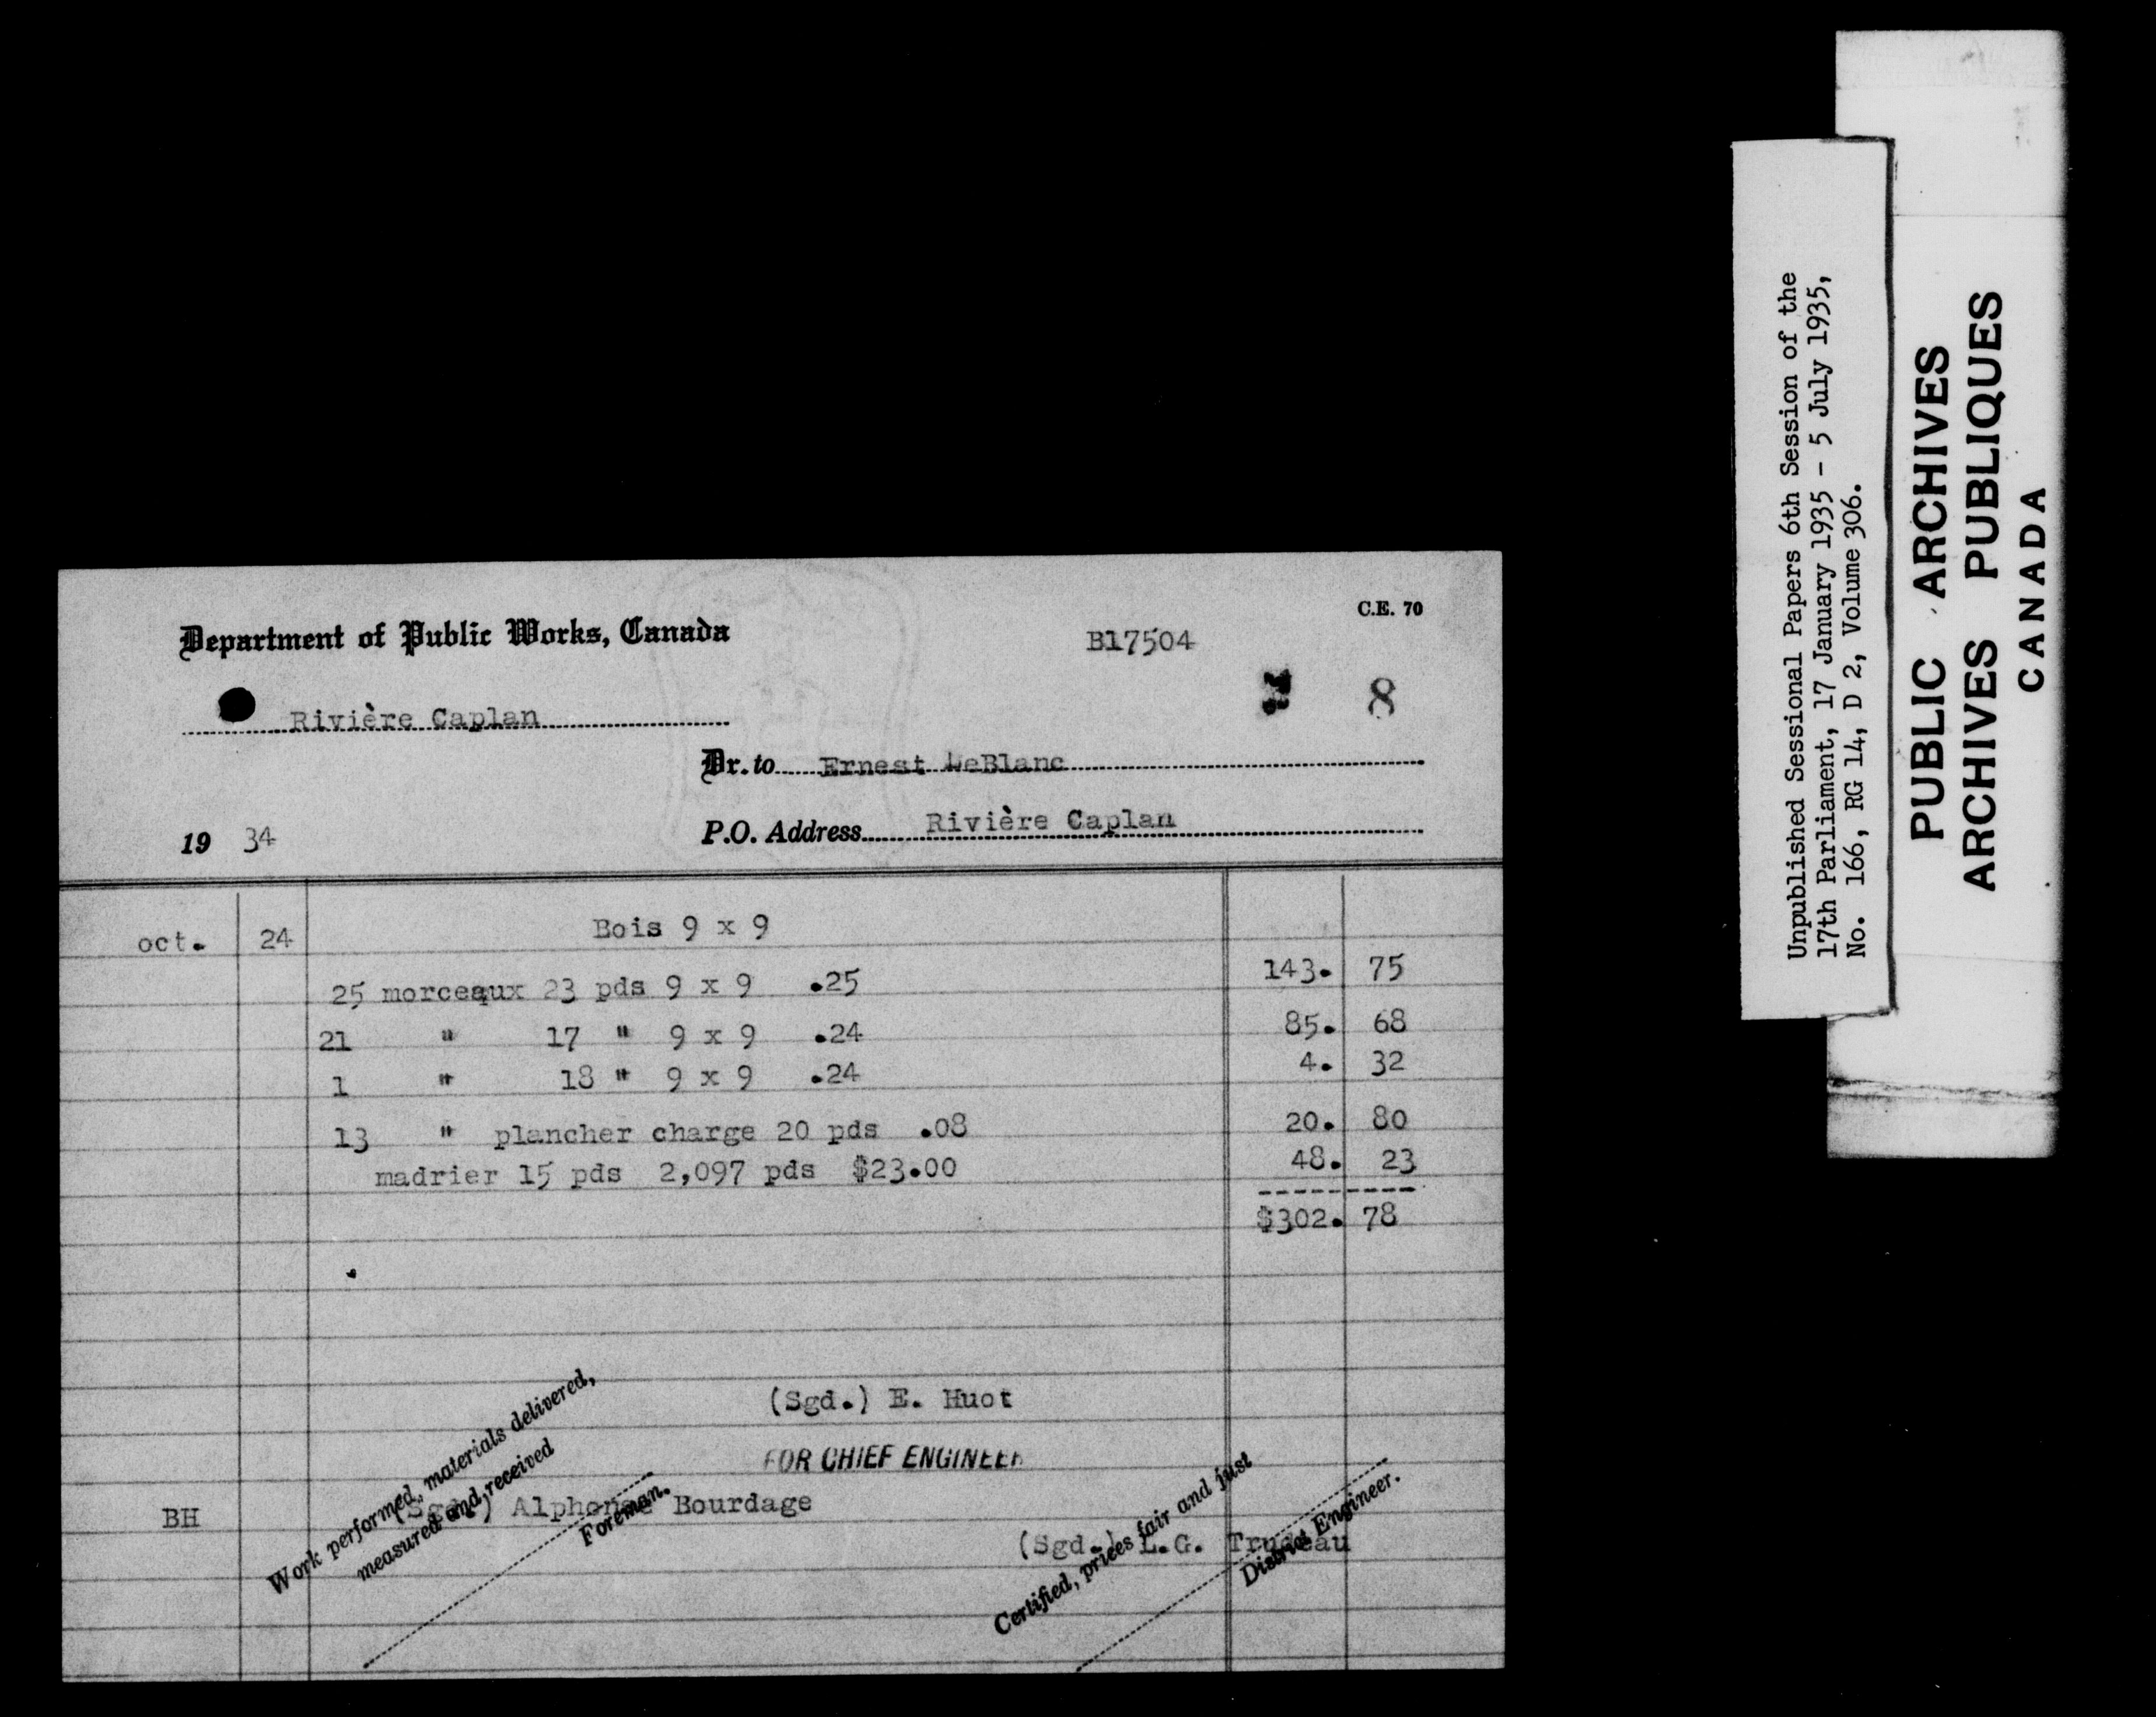 C.E. 70
Department of Public Works, Canada
B17504
8
Rivière Caplan
Dr. to Ernest LeBlanc
19 34
P.O. Address Rivière Caplan
oct. 24 Bois 9 x 9
25 morceaux 23 pds 9 x 9 .25 143. 75
21 " 17 " 9 x 9 .24 85. 68
1 " 18 " 9 x 9 .24 4. 32
13 " plancher charge 20 pds .08 20. 80
madrier 15 pds 2,097 pds $23.00 48. 23
$302. 78
(Sgd.) E. Huot
FOR CHIEF ENGINEER
Work performed, materials delivered,
measured and received
BH (Sgd.) Alphonse Bourdage
Foreman.
Certified, prices fair and just
(Sgd.) L.G. Trudeau
District Engineer.
Unpublished Sessional Papers 6th Session of the
17th Parliament, 17 January 1935 - 5 July 1935,
No. 166, RG 14, D 2, Volume 306.
PUBLIC ARCHIVES
ARCHIVES PUBLIQUES
CANADA